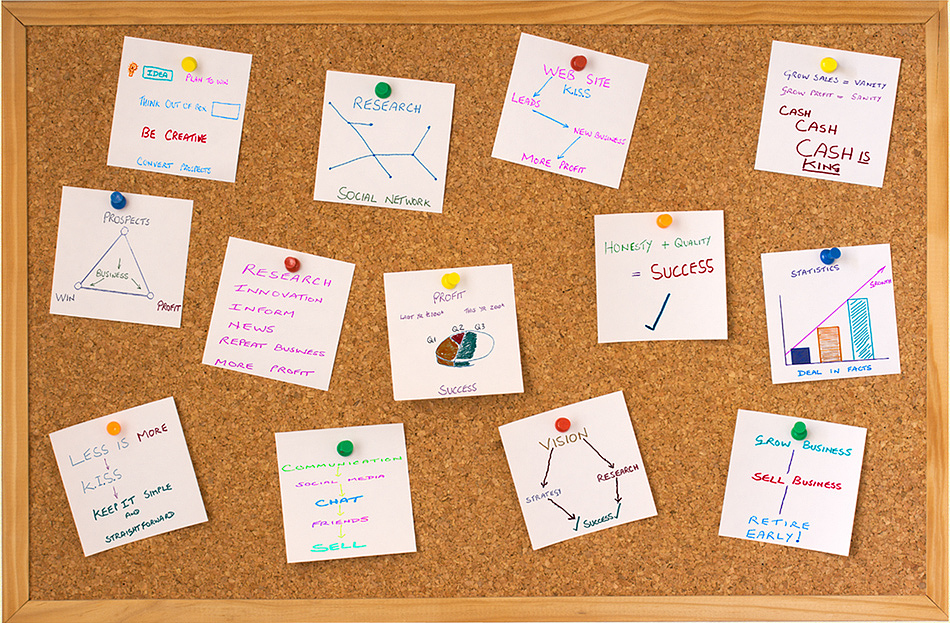 IDEA PLAN TO WIN
THINK OUT OF BOX
BE CREATIVE
CONVERT PROSPECTS
RESEARCH
SOCIAL NETWORK
WEB SITE
K.I.S.S
LEADS
NEW BUSINESS
MORE PROFIT
GROW SALES = VANITY
GROW PROFIT = SANITY
CASH
CASH
CASH IS
KING
PROSPECTS
BUSINESS
WIN
PROFIT
RESEARCH
INNOVATION
INFORM
NEWS
REPEAT BUSINESS
MORE PROFIT
PROFIT
LAST YR THIS YR
Q1 Q2 Q3
SUCCESS
HONESTY + QUALITY
= SUCCESS
STATISTICS
GROWTH
DEAL IN FACTS
LESS IS MORE
K.I.S.S
KEEP IT SIMPLE
AND
STRAIGHTFORWARD
COMMUNICATION
SOCIAL MEDIA
CHAT
FRIENDS
SELL
VISION
STRATEGY
RESEARCH
SUCCESS
GROW BUSINESS
SELL BUSINESS
RETIRE
EARLY!